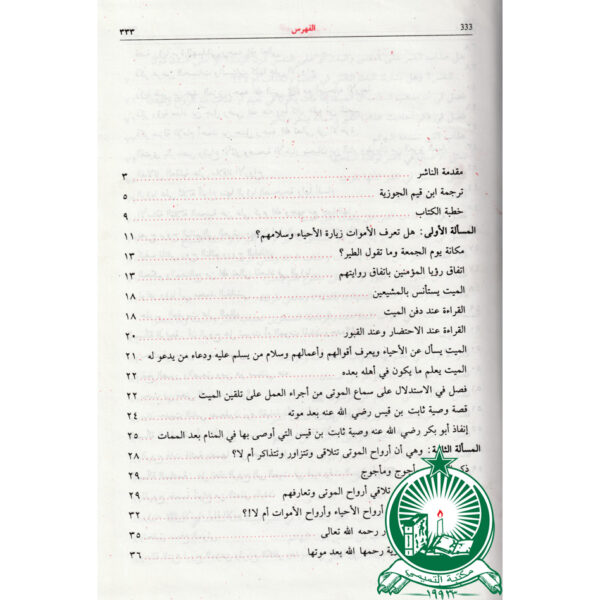 333 الفهرس ٣٣٣
مقدمة الناشر ٣
ترجمة ابن قيم الجوزية ٥
خطبة الكتاب ٩
المسألة الأولى: هل تعرف الأموات زيارة الأحياء وسلامهم؟ ١١
مكانة يوم الجمعة وما تقول الطير؟ ١٣
اتفاق رؤيا المؤمنين باتفاق روايتهم ١٣
الميت يستأنس بالمشيعين ١٨
القراءة عند دفن الميت ١٨
القراءة عند الاحتضار وعند القبور ٢٠
الميت يسأل عن الأحياء ويعرف أقوالهم وأعمالهم وسلام من يسلم عليه ودعاء من يدعو له ٢١
الميت يعلم ما يكون في أهله بعده ٢٢
فصل في الاستدلال على سماع الموتى من أجراء العمل على تلقين الميت ٢٢
قصة وصية ثابت بن قيس رضي الله عنه بعد موته ٢٤
إنفاذ أبو بكر رضي الله عنه وصية ثابت بن قيس التي أوصى بها في المنام بعد الممات ٢٥
المسألة الثانية: وهي أن أرواح الموتى تتلاقى وتتزاور وتتذاكر أم لا؟ ٢٨
أجوج ومأجوج ٢٩
تلاقي أرواح الموتى وتعارفهم ٢٩
أرواح الأحياء وأرواح الأموات أم لا!؟ ٣٢
رحمه الله تعالى ٣٥
رحمها الله بعد موتها ٣٦
مكتبة التميمي